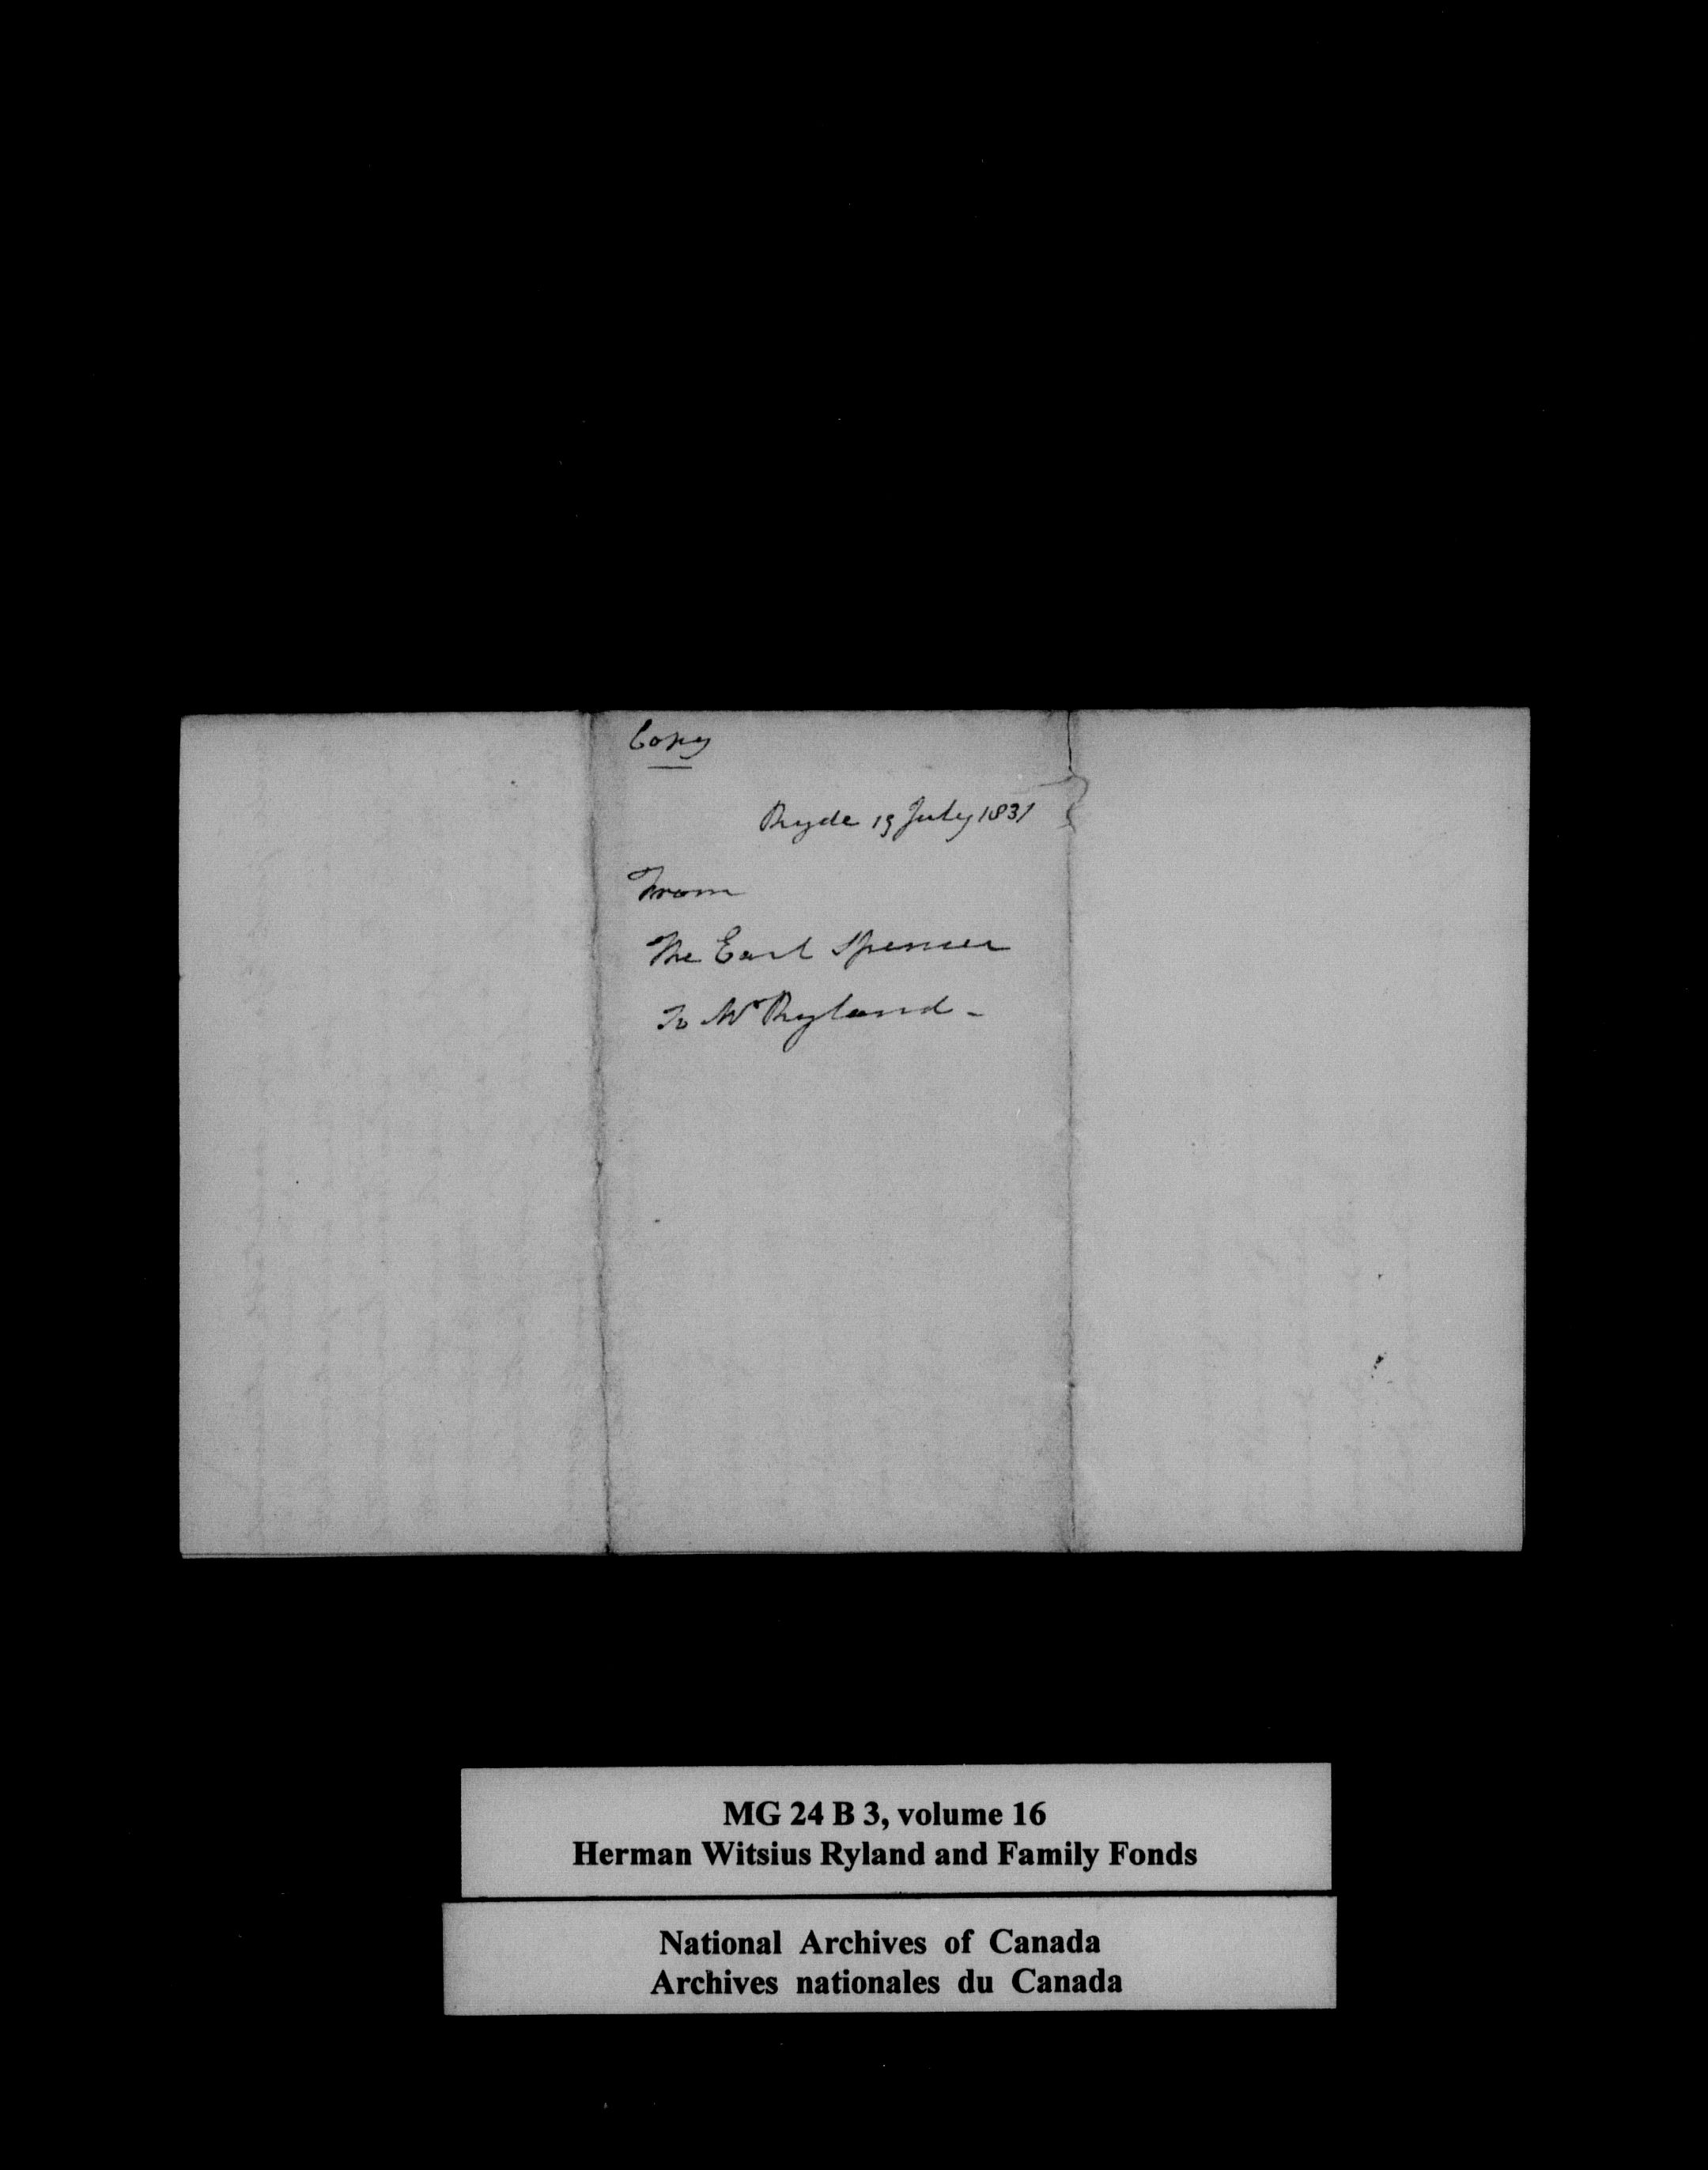 Copy
Ryde 19 July 1831
From
The Earl Spencer
To Mr Ryland -
MG 24 B 3, volume 16
Herman Witsius Ryland and Family Fonds
National Archives of Canada
Archives nationales du Canada